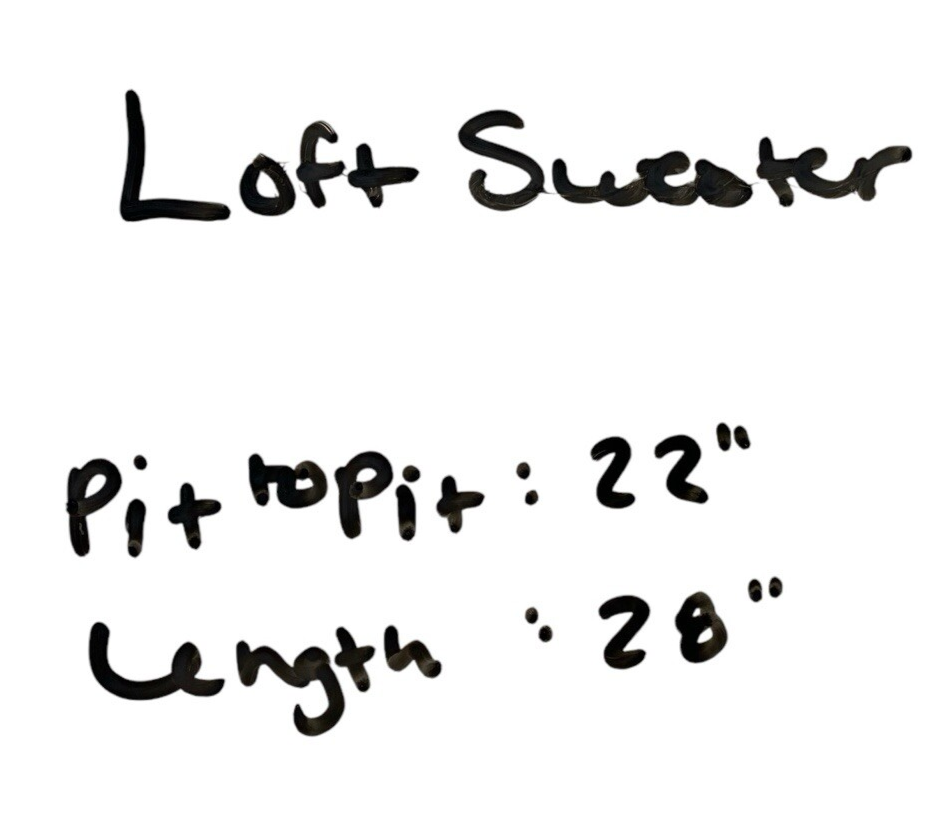 Loft Sweater
Pit to Pit : 22"
Length : 28"